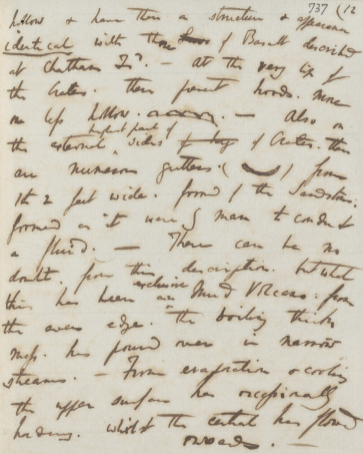 737 (12
hollow & have then a structure & appearance
identical with those of Basalt described
at Chatham Isd. — at the very lip of
the Crater. these parent hoods. more
or less hollow. — Also on
the external highest part of sides of Crater. there
are numerous gutters. ( ) from
1 to 2 feet wide. formed of the Sandstone,
formed as it were by man to conduct
a fluid. — There can be no
doubt from this description. but what
this has been an exclusive Mud Volcano. from
the even edge. the boiling thick
mess. has poured over in narrow
streams. — From evaporation & cooling
the upper surface has occasionally
hardened. whilst the central has flowed
onwards. —